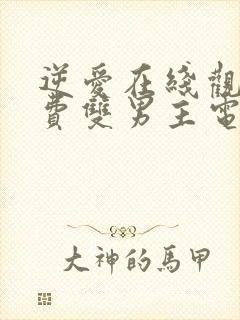 逆愛在綫觀
費雙男主電
大神的馬甲